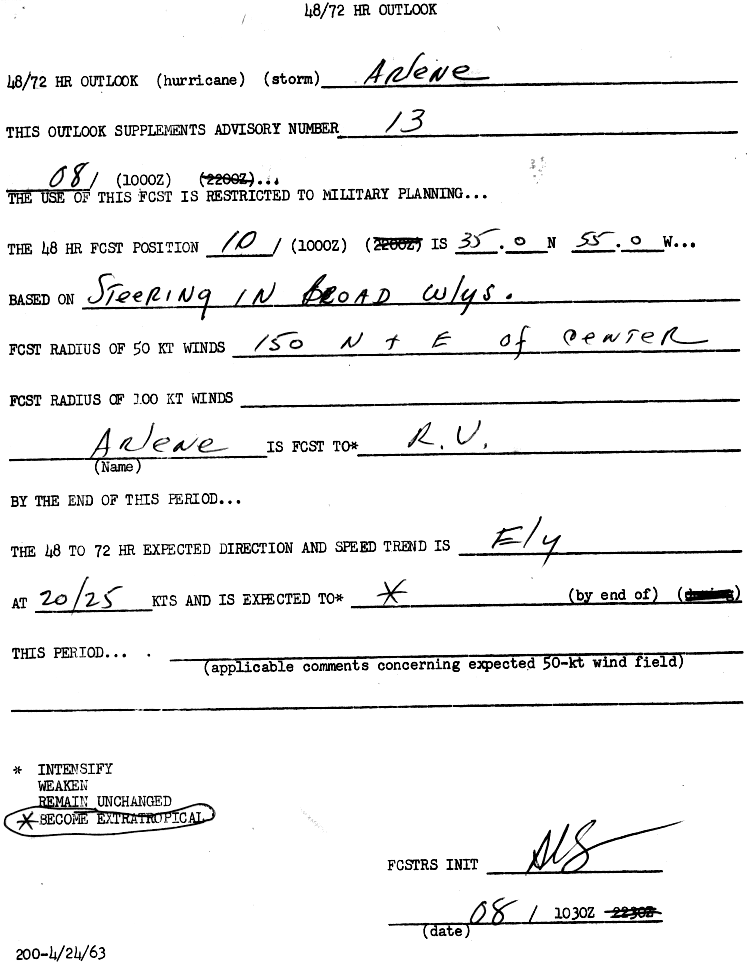 48/72 HR OUTLOOK
48/72 HR OUTLOOK (hurricane) (storm) Arlene
THIS OUTLOOK SUPPLEMENTS ADVISORY NUMBER 13
08/ (1000Z) (2200Z)...
THE USE OF THIS FCST IS RESTRICTED TO MILITARY PLANNING...
THE 48 HR FCST POSITION 10 / (1000Z) (2200Z) IS 35.0 N 55.0 W...
BASED ON STeeRING IN BROAD W/ys.
FCST RADIUS OF 50 KT WINDS 150 N + E of CENTER
FCST RADIUS OF 100 KT WINDS
Arlene IS FCST TO* R.U.
(Name)
BY THE END OF THIS PERIOD...
THE 48 TO 72 HR EXPECTED DIRECTION AND SPEED TREND IS E/y
AT 20/25 KTS AND IS EXPECTED TO* * (by end of) (during)
THIS PERIOD... .
(applicable comments concerning expected 50-kt wind field)
* INTENSIFY
WEAKEN
REMAIN UNCHANGED
* BECOME EXTRATROPICAL
FCSTRS INIT
08 / 1030Z 2230Z
(date)
200-4/24/63